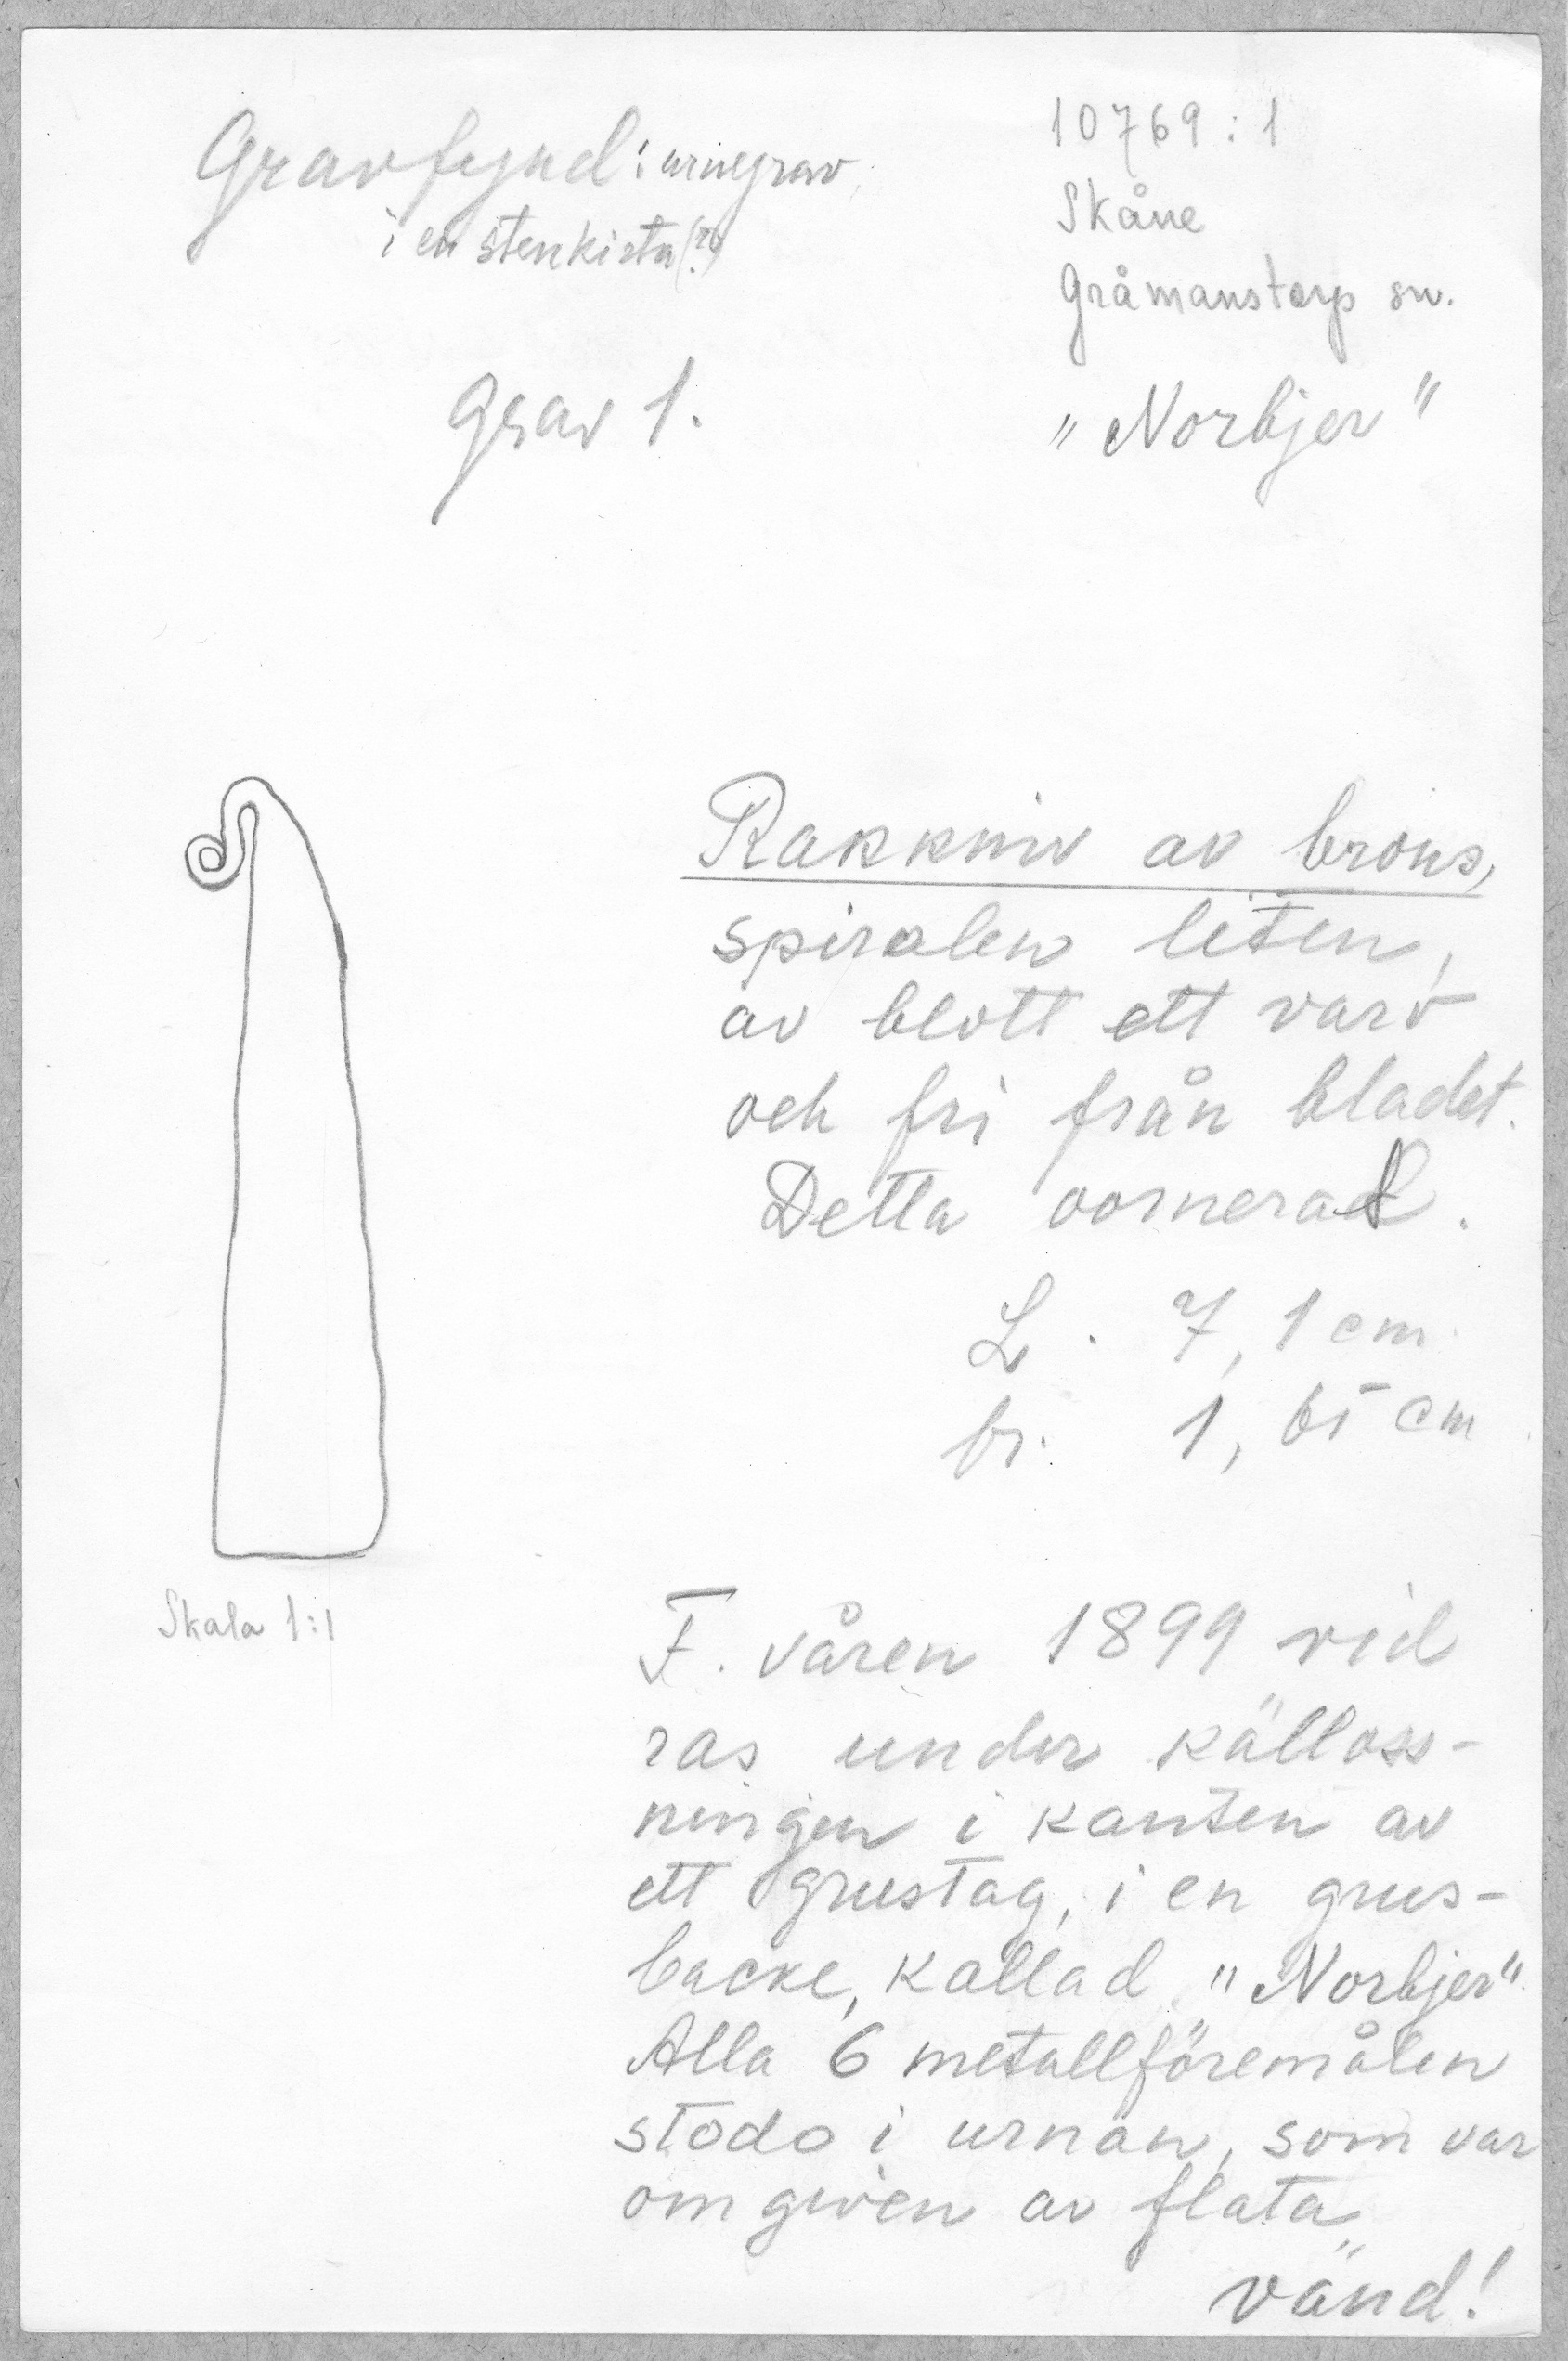 Gravfynd: urnegrav
i en stenkista (?)
Grav 1.
10769:1
Skåne
Gråmanstorp sn.
"Norbjer"
Rakkniv av brons,
spiralen liten,
av blott ett varv
och fri från bladet.
Detta oornerad.
L. 7,1 cm
br. 1,65 cm
Skala 1:1
F. våren 1899 vid
ras under källoss-
ningen i kanten av
ett grustag, i en grus-
backe, kallad "Norbjer".
Alla 6 metallföremålen
stodo i urnan, som var
omgiven av flata
vänd!